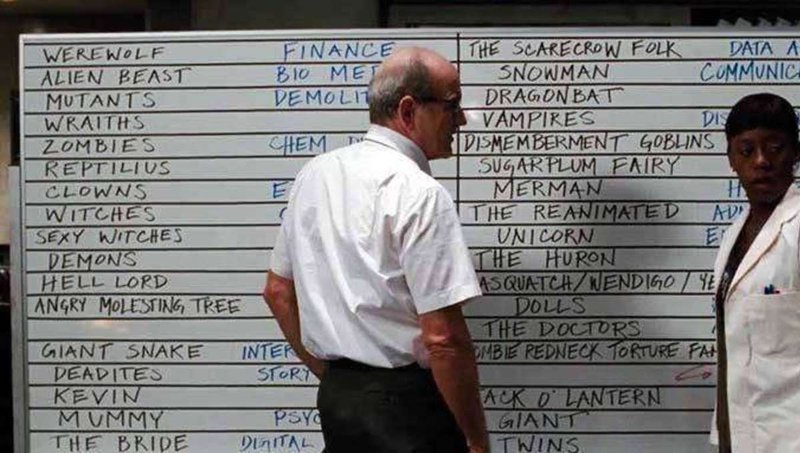 WEREWOLF FINANCE
ALIEN BEAST BIO MED
MUTANTS DEMOLIT
WRAITHS
ZOMBIES CHEM
REPTILIUS
CLOWNS
WITCHES
SEXY WITCHES
DEMONS
HELL LORD
ANGRY MOLESTING TREE
GIANT SNAKE INTER
DEADITES STORY
KEVIN
MUMMY PSYC
THE BRIDE DIGITAL
THE SCARECROW FOLK DATA A
SNOWMAN COMMUNIC
DRAGONBAT
VAMPIRES DIS
DISMEMBERMENT GOBLINS
SUGARPLUM FAIRY
MERMAN H
THE REANIMATED
UNICORN
THE HURON
ASQUATCH/WENDIGO/YE
DOLLS
THE DOCTORS
OMBIE REDNECK TORTURE FA
ACK O' LANTERN
GIANT
TWINS